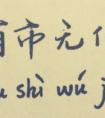 有市无
u shì wú j